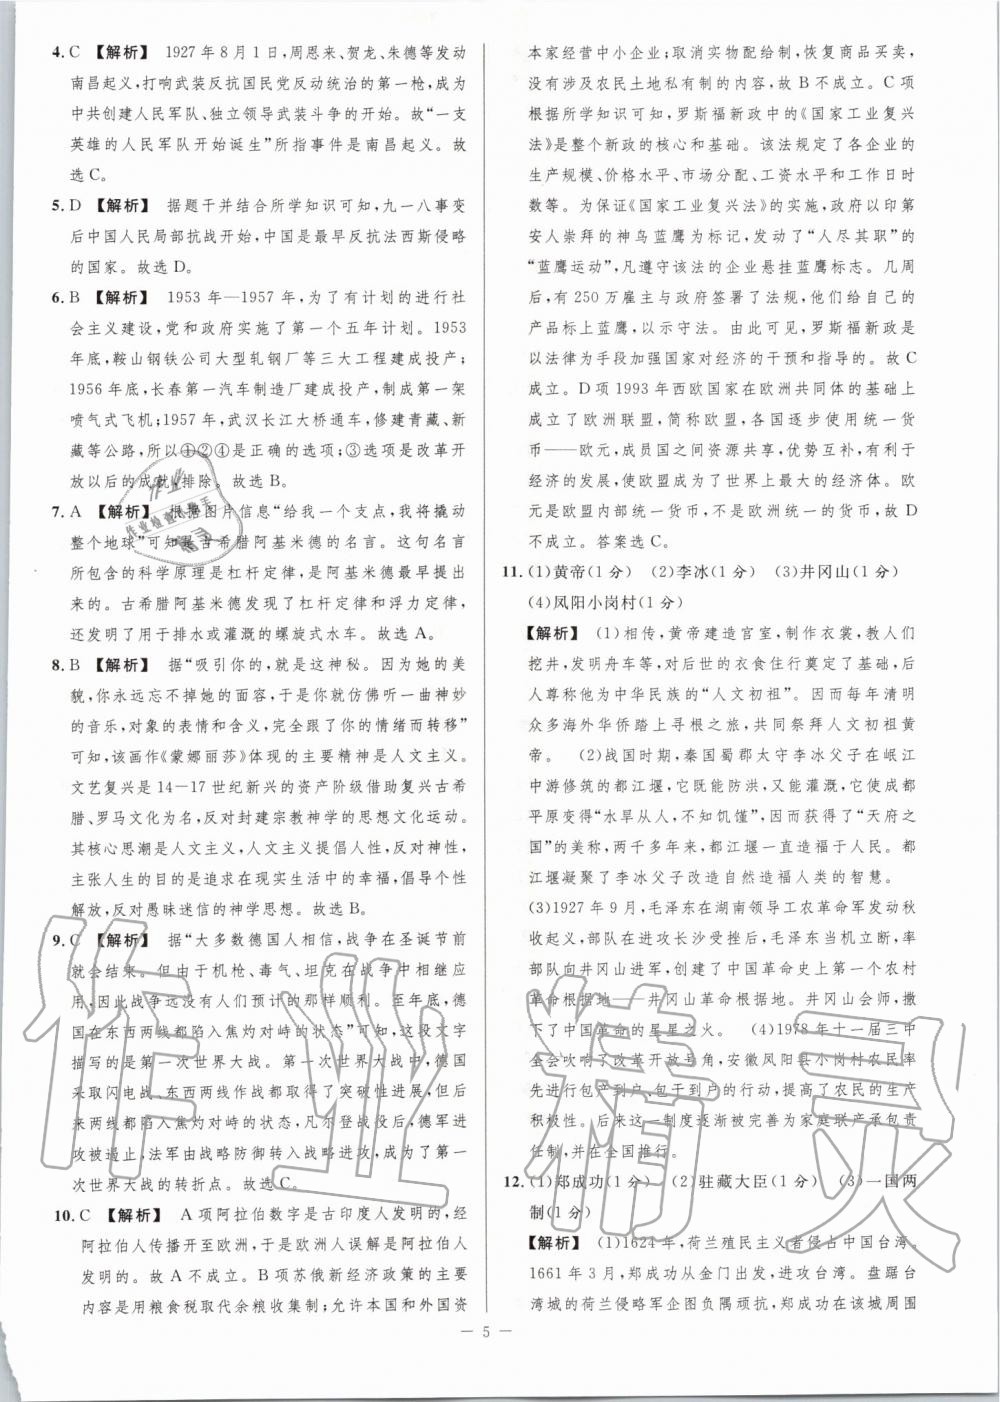 4. C 【解析】 1927年8月1日,周恩来、贺龙、朱德等发动
南昌起义,打响武装反抗国民党反动统治的第一枪,成为
中共创建人民军队、独立领导武装斗争的开始。故“一支
英雄的人民军队开始诞生”所指事件是南昌起义。故
选C。
5. D 【解析】 据题干并结合所学知识可知,九一八事变
后中国人民局部抗战开始,中国是最早反抗法西斯侵略
的国家。故选D。
6. B 【解析】 1953年—1957年,为了有计划的进行社
会主义建设,党和政府实施了第一个五年计划。1953
年底,鞍山钢铁公司大型轧钢厂等三大工程建成投产;
1956年底,长春第一汽车制造厂建成投产,制成第一架
喷气式飞机;1957年,武汉长江大桥通车,修建青藏、新
藏等公路,所以①②④是正确的选项;③选项是改革开
放以后的成就,排除。故选B。
7. A 【解析】 根据图片信息“给我一个支点,我将撬动
整个地球”可知是古希腊阿基米德的名言。这句名言
所包含的科学原理是杠杆定律,是阿基米德最早提出
来的。古希腊阿基米德发现了杠杆定律和浮力定律,
还发明了用于排水或灌溉的螺旋式水车。故选A。
8. B 【解析】 据“吸引你的,就是这神秘。因为她的美
貌,你永远忘不掉她的面容,于是你就仿佛听一曲神妙
的音乐,对象的表情和含蓄,完全跟了你的情绪而转移”
可知,该画作《蒙娜丽莎》体现的主要精神是人文主义。
文艺复兴是14—17世纪新兴的资产阶级借助复兴古希
腊、罗马文化为名,反对封建宗教神学的思想文化运动。
其核心思潮是人文主义,人文主义提倡人性,反对神性,
主张人生的目的是追求在现实生活中的幸福,倡导个性
解放,反对愚昧迷信的神学思想。故选B。
9. C 【解析】 据“大多数德国人相信,战争在圣诞节前
就会结束。但由于机枪、毒气、坦克在战争中相继应
用,因此战争远没有人们预计的那样顺利。至年底,德
国在东西两线都陷入焦灼对峙的状态”可知,这段文字
描写的是第一次世界大战。第一次世界大战中,德国
采取闪电战、东西两线作战都取得了突破性进展,但后
来两线都陷入焦灼对峙的状态,凡尔登战役后,德军进
攻被遏止,法军由战略防御转入战略进攻,成为了第一
次世界大战的转折点。故选C。
10. C 【解析】 A项阿拉伯数字是古印度人发明的,经
阿拉伯人传播开至欧洲,于是欧洲人误解是阿拉伯人
发明的。故A不成立。B项苏俄新经济政策的主要
内容是用粮食税取代余粮收集制;允许本国和外国资
本家经营中小企业;取消实物配给制,恢复商品买卖,
没有涉及农民土地私有制的内容,故B不成立。C项
根据所学知识可知,罗斯福新政中的《国家工业复兴
法》是整个新政的核心和基础。该法规定了各企业的
生产规模、价格水平、市场分配、工资水平和工作日时
数等。为保证《国家工业复兴法》的实施,政府以印第
安人崇拜的神鸟蓝鹰为标记,发动了“人尽其职”的
“蓝鹰运动”,凡遵守该法的企业悬挂蓝鹰标志。几周
后,有250万雇主与政府签署了法规,他们在自己的
产品标上蓝鹰,以示守法。由此可见,罗斯福新政是
以法律为手段加强国家对经济的干预和指导的。故C
成立。D项1993年西欧国家在欧洲共同体的基础上
成立了欧洲联盟,简称欧盟,各国逐步使用统一货
币——欧元,成员国之间资源共享,优势互补,有利于
经济的发展,使欧盟成为了世界上最大的经济体。欧
元是欧盟内部统一货币,不是欧洲统一的货币,故D
不成立。答案选C。
11. (1)黄帝(1分) (2)李冰(1分) (3)井冈山(1分)
(4)凤阳小岗村(1分)
【解析】 (1)相传,黄帝建造宫室,制作衣裳,教人们
挖井,发明舟车等,对后世的衣食住行奠定了基础,后
人尊称他为中华民族的“人文初祖”。因而每年清明
众多海外华侨踏上寻根之旅,共同祭拜人文初祖黄
帝。 (2)战国时期,秦国蜀郡太守李冰父子在岷江
中游修筑的都江堰,它既能防洪,又能灌溉,它使成都
平原变得“水旱从人,不知饥馑”,因而获得了“天府之
国”的美称,两千多年来,都江堰一直造福于人民。都
江堰凝聚了李冰父子改造自然造福人类的智慧。
(3)1927年9月,毛泽东在湖南领导工农革命军发动秋
收起义,部队在进攻长沙受挫后,毛泽东当机立断,率
部队向井冈山进军,创建了中国革命史上第一个农村
革命根据地——井冈山革命根据地。井冈山会师,撒
下了中国革命的星星之火。 (4)1978年十一届三中
全会吹响了改革开放号角,安徽凤阳县小岗村农民率
先进行包产到户、包干到户的行动,提高了农民的生产
积极性。后来这一制度逐渐被完善为家庭联产承包责
任制,并在全国推行。
12. (1)郑成功(1分) (2)驻藏大臣(1分) (3)一国两
制(1分)
【解析】 (1)1624年,荷兰殖民主义者侵占中国台湾。
1661年3月,郑成功从金门出发,进攻台湾。盘踞台
湾城的荷兰侵略军企图负隅顽抗,郑成功在该城周围
— 5 —
作业精灵